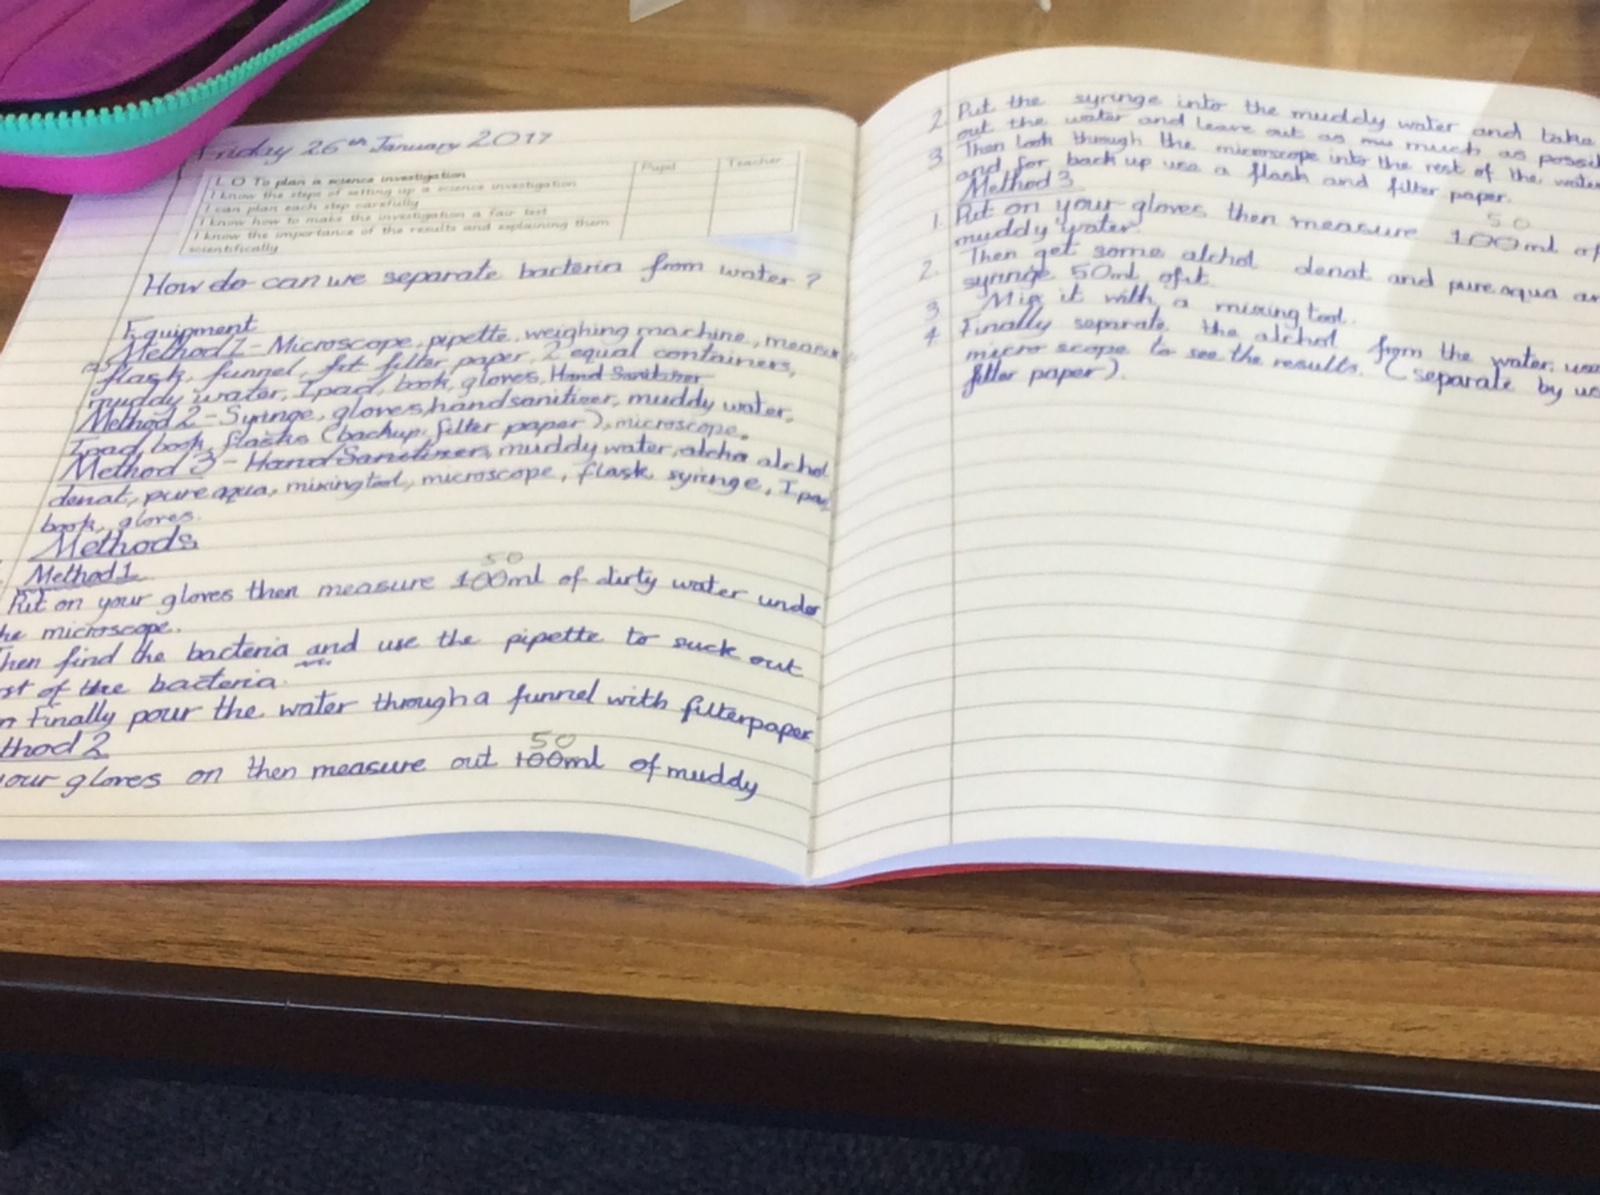 Friday 26th January 2017
L.O To plan a science investigation
Pupil
Teacher
I know the steps of setting up a science investigation
I can plan each step carefully
I know how to make the investigation a fair test
I know the importance of the results and explaining them
scientifically
How do can we separate bacteria from water?
Equipment
Method 1 - Microscope, pipette, weighing machine, measur
flask, funnel, filter paper, 2 equal containers,
muddy water, Ipad, book, gloves, Hand Sanitizer
Method 2 - Syringe, gloves, hand sanitizer, muddy water,
Ipad, book, flasks (backup: filter paper), microscope.
Method 3 - Hand Sanitizer, muddy water, alcho alchol
denat, pure aqua, mixing tool, microscope, flask, syringe, Ipad
book, gloves.
Methods
Method 1
50
Put on your gloves then measure 100ml of dirty water under
he microscope.
hen find the bacteria and use the pipette to suck out
st of the bacteria.
n Finally pour the water through a funnel with filter paper
thod 2
50
your gloves on then measure out 100ml of muddy
2. Put the syringe into the muddy water and take
out the water and leave out as mu much as possi
3. Then look through the microscope into the rest of the water
and for back up use a flask and filter paper.
Method 3
50
1. Put on your gloves then measure 100ml of
muddy water.
2. Then get some alchol denat and pure aqua an
syringe 50ml of it.
3. Mix it with a mixing tool.
4. Finally separate the alchol from the water, use
micro scope to see the results. (separate by us
filter paper).